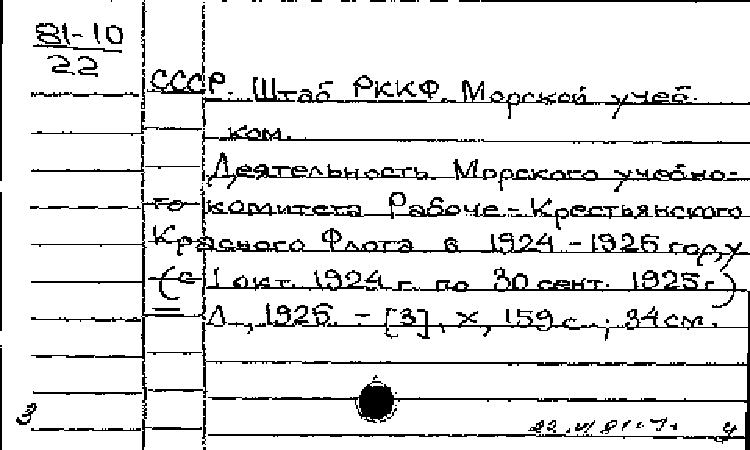 81-10
22
СССР. Штаб РККФ. Морской учеб.
ком.
Деятельность Морского учебно-
го комитета Рабоче-Крестьянского
Красного Флота в 1924-1925 году
(с 1 окт. 1924 г. по 30 сент. 1925 г.)
Л., 1925. - [3], X, 159 с.; 34 см.